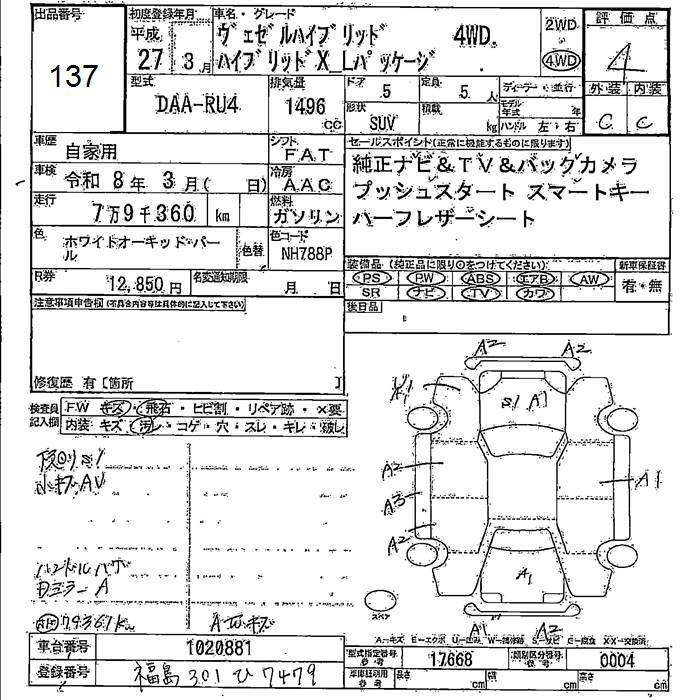 出品番号
137
初度登録年月
平成
27 3月
車名・グレード
ヴェゼルハイブリッド 4WD
ハイブリッドX_Lパッケージ
2WD
4WD
評価点
4
外装 内装
C C
型式
DAA-RU4
排気量
1496
cc
ドア
5
定員
5 人
形状
SUV
積載
kg
ディーラー・並行
モデル年式 年
ハンドル 左・右
車歴
自家用
シフト
FAT
車検
令和 8年 3月( 日)
冷房
AAC
走行
7万9千360 km
燃料
ガソリン
色
ホワイトオーキッド・パール
色替
色コード
NH788P
R券
12,850円
名変通知期限
月 日
セールスポイント(正常に機能するものに限ります)
純正ナビ&TV&バックカメラ
プッシュスタート スマートキー
ハーフレザーシート
装備品 (純正品に限り○をつけてください)
PS PW ABS エアB AW
SR ナビ TV カワ
新車保証書
有・無
後日品
注意事項申告欄(不具合内容等は具体的に記入して下さい)
修復歴 有[箇所 ]
検査員記入欄
F.W キズ・飛石・ヒビ割・リペア跡・×要
内装 キズ・汚レ・コゲ・穴・スレ・キレ・破レ
下回りS1
小キズAU
ハンドルハゲ
Dミラー A
79367km
A2 A2
S1 A1
A2
A3
A2
A1
A1
A1 A2
スペア
車台番号
1020881
登録番号
福島 301 ひ 7479
型式指定番号
17668
類別区分番号
0004
長さ cm 幅 cm 高さ cm